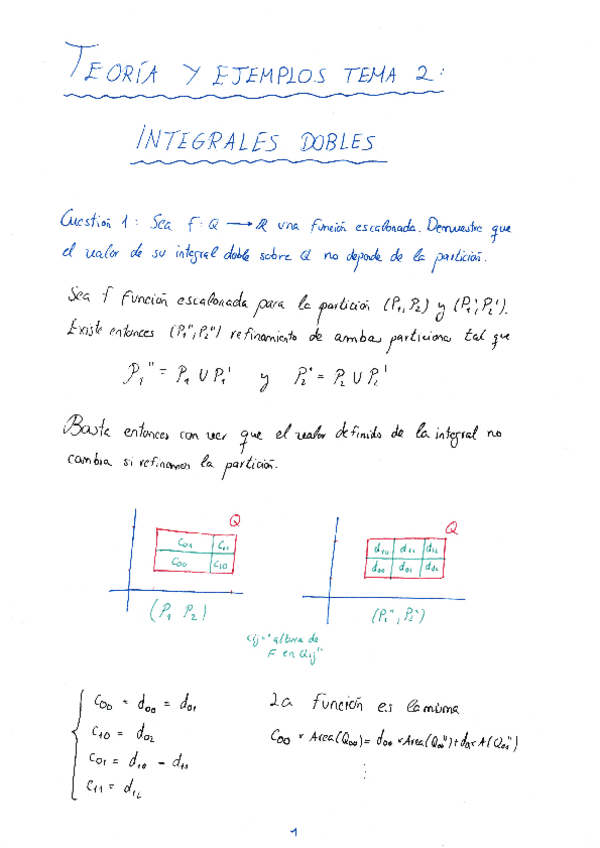 TEORÍA Y EJEMPLOS TEMA 2:
INTEGRALES DOBLES
Cuestión 1: Sea f: Q → R una función escalonada. Demuestre que
el valor de su integral doble sobre Q no depende de la partición.
Sea f función escalonada para la partición (P₁, P₂) y (P₁', P₂').
Existe entonces (P₁'', P₂'') refinamiento de ambas particiones tal que
P₁'' = P₁ ∪ P₁' y P₂'' = P₂ ∪ P₂'
Basta entonces con ver que el valor definido de la integral no
cambia si refinamos la partición.
Q
C₀₁ C₁₁
C₀₀ C₁₀
(P₁ P₂)
Q
d₁₀ d₁₁ d₁₂
d₀₀ d₀₁ d₀₂
(P₁'', P₂'')
Cij = "altura de
F en Qij"
C₀₀ = d₀₀ = d₀₁
C₁₀ = d₀₂
C₀₁ = d₁₀ - d₁₁
C₁₁ = d₁₂
La función es la misma
C₀₀ × Area(Q₀₀) = d₀₀ × Area(Q₀₀'') + d₀₁ × A(Q₀₁'')
⋮
1